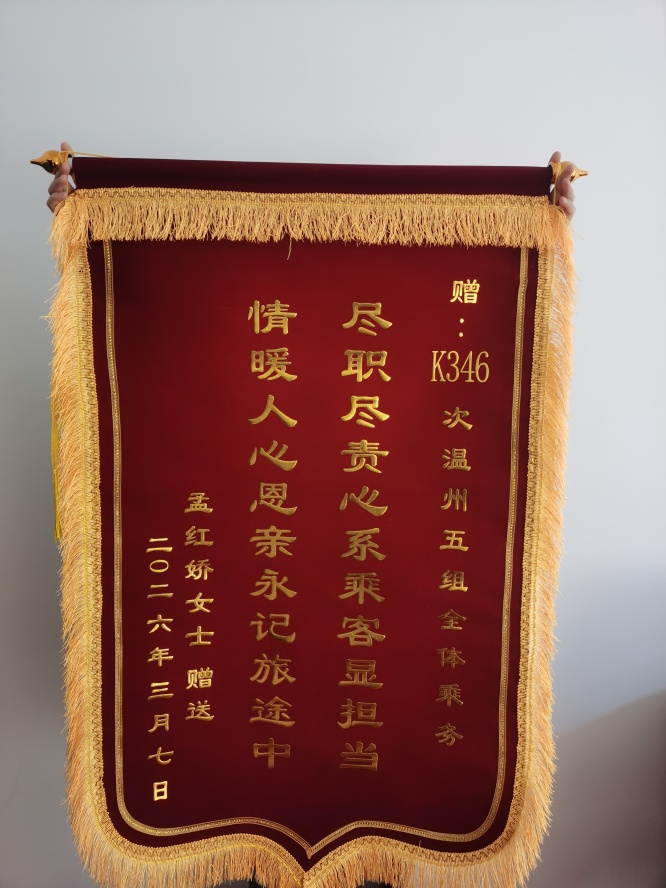 赠：K346次温州五组全体乘务
尽职尽责心系乘客显担当
情暖人心恩亲永记旅途中
孟红娇女士 赠送
二〇二六年三月七日